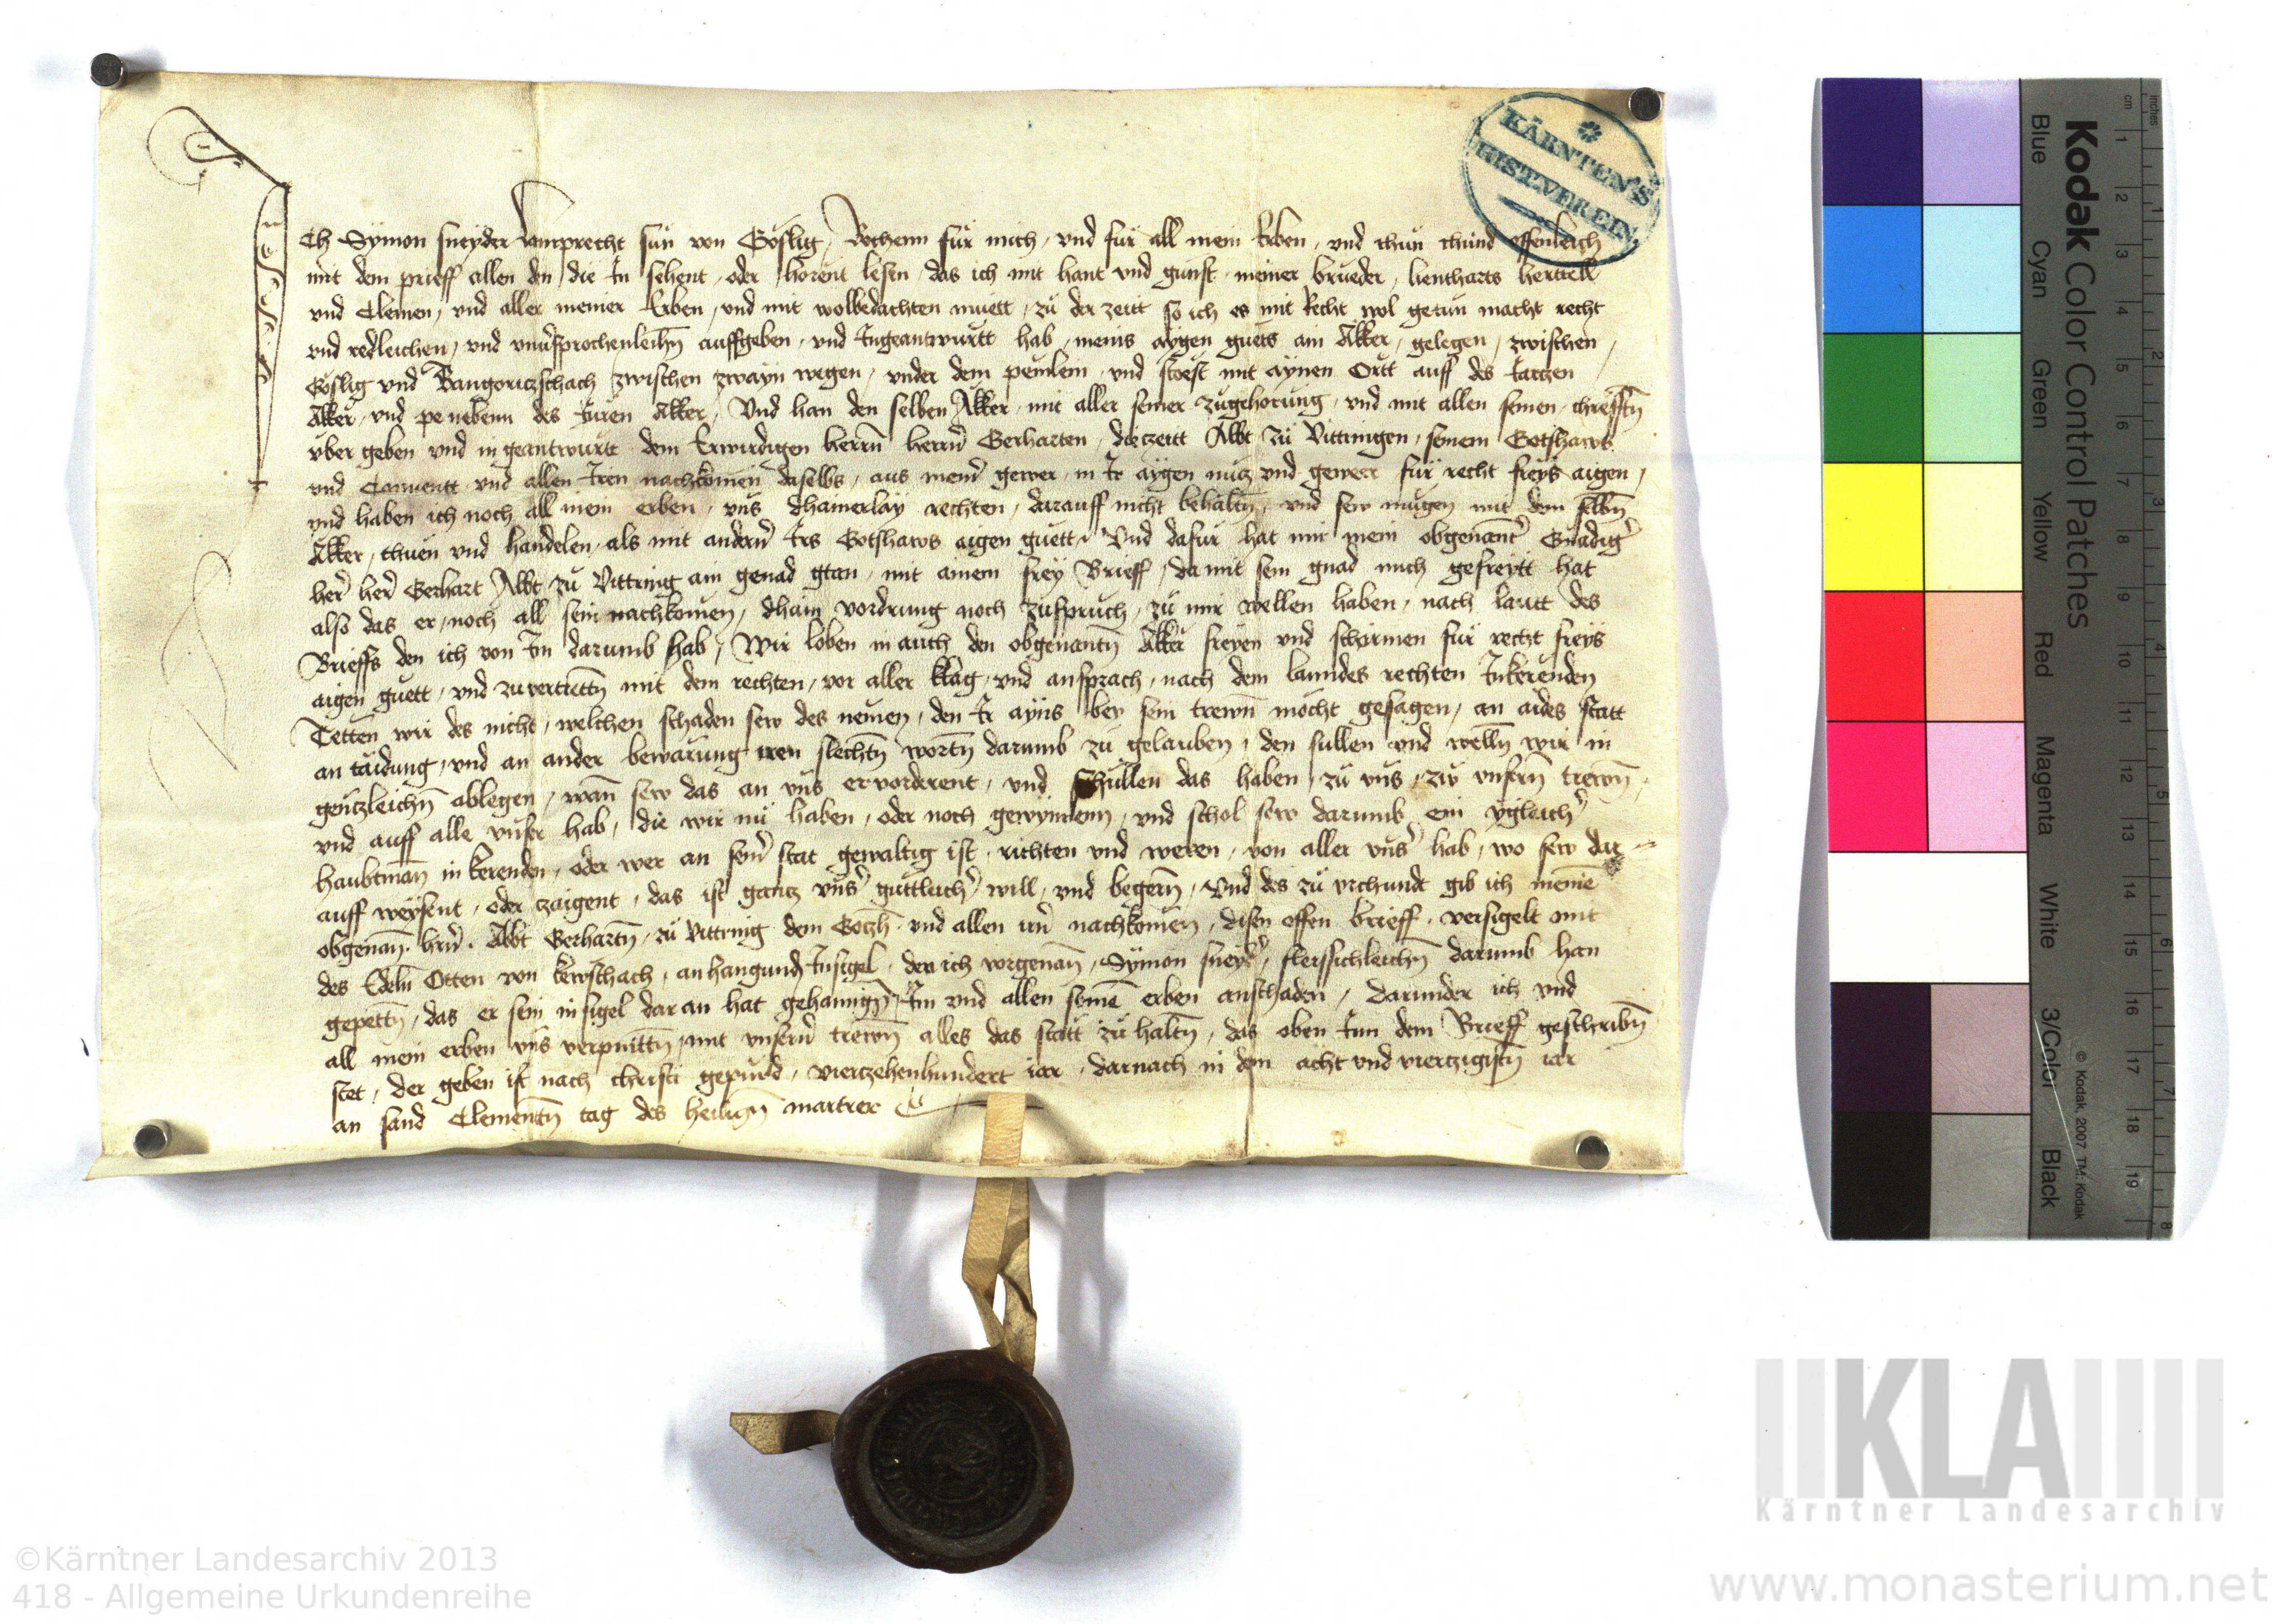 Ich Symon sneyder Lamprecht sun von Göslig, Vechenn für mich, und für all mein Erben, und thun chund offenleich
mit dem prieff allen den, die In sehent, oder hörent lesen, das ich mit hant und gunst meiner brueder, lienharts herttell
und Clemen, und aller meiner Erben, und mit wolbedachten muett, zu der zeitt so ich es mit Recht wol getun macht recht
und redleichen, und unversprochenleihn auffgeben, und Ingeantwurtt hab, meins aygen guets ain Akker, gelegen, zwischen,
Göslig und zwischen zwayn wegen, under dem pemlein, und stoest mit aynen Ortt auff des
Akker, und pe nebenn des Akker, Und han den selben Akker, mit aller seiner zugehorung, und mit allen seinen, chrefftn
uber geben und in geantwurtt dem Erwirdigen herrn herrn Gerharten, die zeitt Abbt zu Vittringen, seinem Gotshaws
und Conventt und allen Iren nachkomen daselbs, aus meiner gewer, in Ir aygen nutz und gewer für recht freys aigen,
und haben ich noch all mein erben, uns dhainerlay rechten, darauff nicht behaltn, und sew mugen mit dem selbn
Akker, thuen und handelen, als mit andern Irs Gotshaws aigen guett, Und dafur hat mir mein obgenanter Gnadiger
her her Gerhart Abbt zu Vittring ain genad gtan, mit ainem frey Brieff, da mit sein gnad mich gefreytt hat
also das er, noch all sein nachkomen, dhain vordrung noch zuspruch, zu mir wellen haben, nach lautt des
Brieffs den ich von Im darumb hab, Wir loben in auch den obgenantn Akker freyen und schermen für recht freys
aigen guett, und zuvertrettn mit dem rechten, vor aller klag, und ansprach, nach dem lanndes rechten Inkerenden
Tetten wir des nicht, welchen schaden sew des nemen, den Ir ayns bey sein trewn möcht gesagen, an aides statt
an taidung, und an ander bewarung iren slechtn wortn darumb zu gelauben, den sullen und welln wir in
gentzleichn ablegen, wann sew das an uns ervorderent, und schullen das haben, zu uns, zw unsern trewn,
und auff alle unser hab, die wir nu haben, oder noch gewynnenn, und schol sew darumb ein ygleicher
haubtman in kerenden, oder wer an seiner stat gewaltig ist, richten und weren, von aller unser hab, wo sew dar
auff weysent, oder zaigent, das ist gantz unser guttleicher will, und begern, Und des zu urchundt gib ich meinem
obgenan. hern. Abbt Gerhartn, zu Vittring dem Gotzh und allen irn nachkomen, disen offen brieff, versigelt mit
des Edeln Otten von, anhangundn Insigel, den ich vorgenan, Symon sneyder, fleissichleichn darumb han
gepettn, das er sein insigel dar an hat gehanngn, Im und allen seinen erben anschaden, darunder ich und
all mein erben uns verpuntn, mit unsern trewn alles das statt zu haltn, das oben Inn dem Brieff geschribn
stet, der geben ist nach christi gepurd, vierzehenhundert iar, darnach in dem acht und viertzigistn iar
an sand Clementn tag des heilign martrer
KÄRNTEN'S
HIST.VEREIN
Kodak Color Control Patches
Blue Cyan Green Yellow Red Magenta White 3/Color Black
© Kodak, 2007 TM: Kodak
cm 1 2 3 4 5 6 7 8 9 10 11 12 13 14 15 16 17 18 19
inches 1 2 3 4 5 6 7 8
KLA
Kärntner Landesarchiv
©Kärntner Landesarchiv 2013
418 - Allgemeine Urkundenreihe
www.monasterium.net